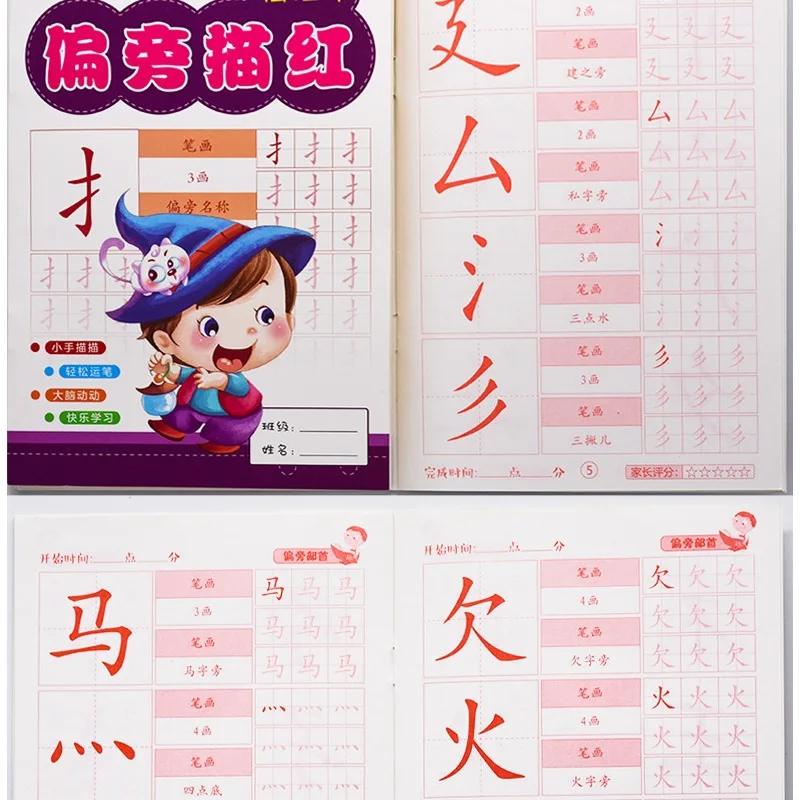 偏旁描红
扌
笔画
3画
偏旁名称
扌 扌 扌
扌 扌 扌
扌 扌 扌
小手描描
轻松运笔
大脑动动
快乐学习
班级:
姓名:
廴
2画
笔画
建之旁
廴 廴 廴
廴 廴 廴
厶
笔画
2画
笔画
私字旁
厶 厶 厶
厶 厶 厶
厶 厶 厶
氵
笔画
3画
笔画
三点水
氵 氵 氵
氵 氵 氵
氵 氵 氵
彡
笔画
3画
笔画
三撇儿
彡 彡 彡
彡 彡 彡
彡 彡 彡
完成时间: 点 分
5
家长评分: ☆☆☆☆☆
开始时间: 点 分
偏旁部首
马
笔画
3画
笔画
马字旁
马 马 马
马 马 马
马 马 马
灬
笔画
4画
笔画
四点底
灬 灬 灬
灬 灬 灬
灬 灬 灬
开始时间: 点 分
偏旁部首
欠
笔画
4画
笔画
欠字旁
欠 欠 欠
欠 欠 欠
欠 欠 欠
火
笔画
4画
笔画
火字旁
火 火 火
火 火 火
火 火 火